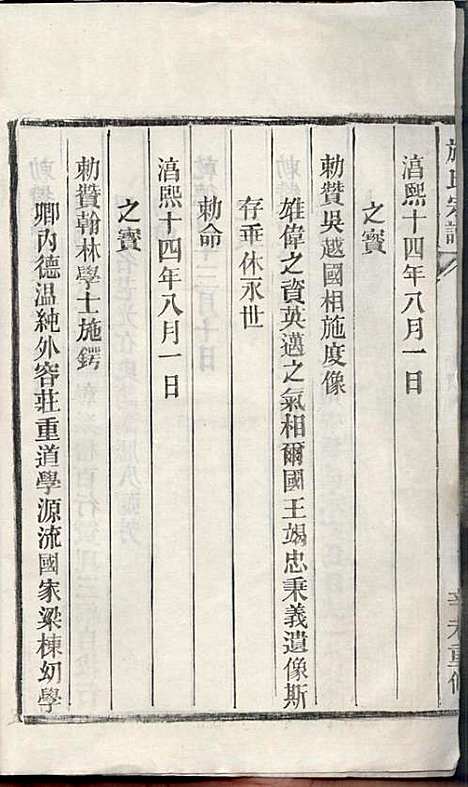 施氏宗譜
辛未重修
淳熙十四年八月一日
之寶
勅贊吳越國相施度像
雄偉之資英邁之氣相爾國王竭忠秉義遺像斯
存垂休永世
勅命
淳熙十四年八月一日
之寶
勅贊翰林學士施鍔
卿內德温純外容莊重道學源流國家梁棟幼學